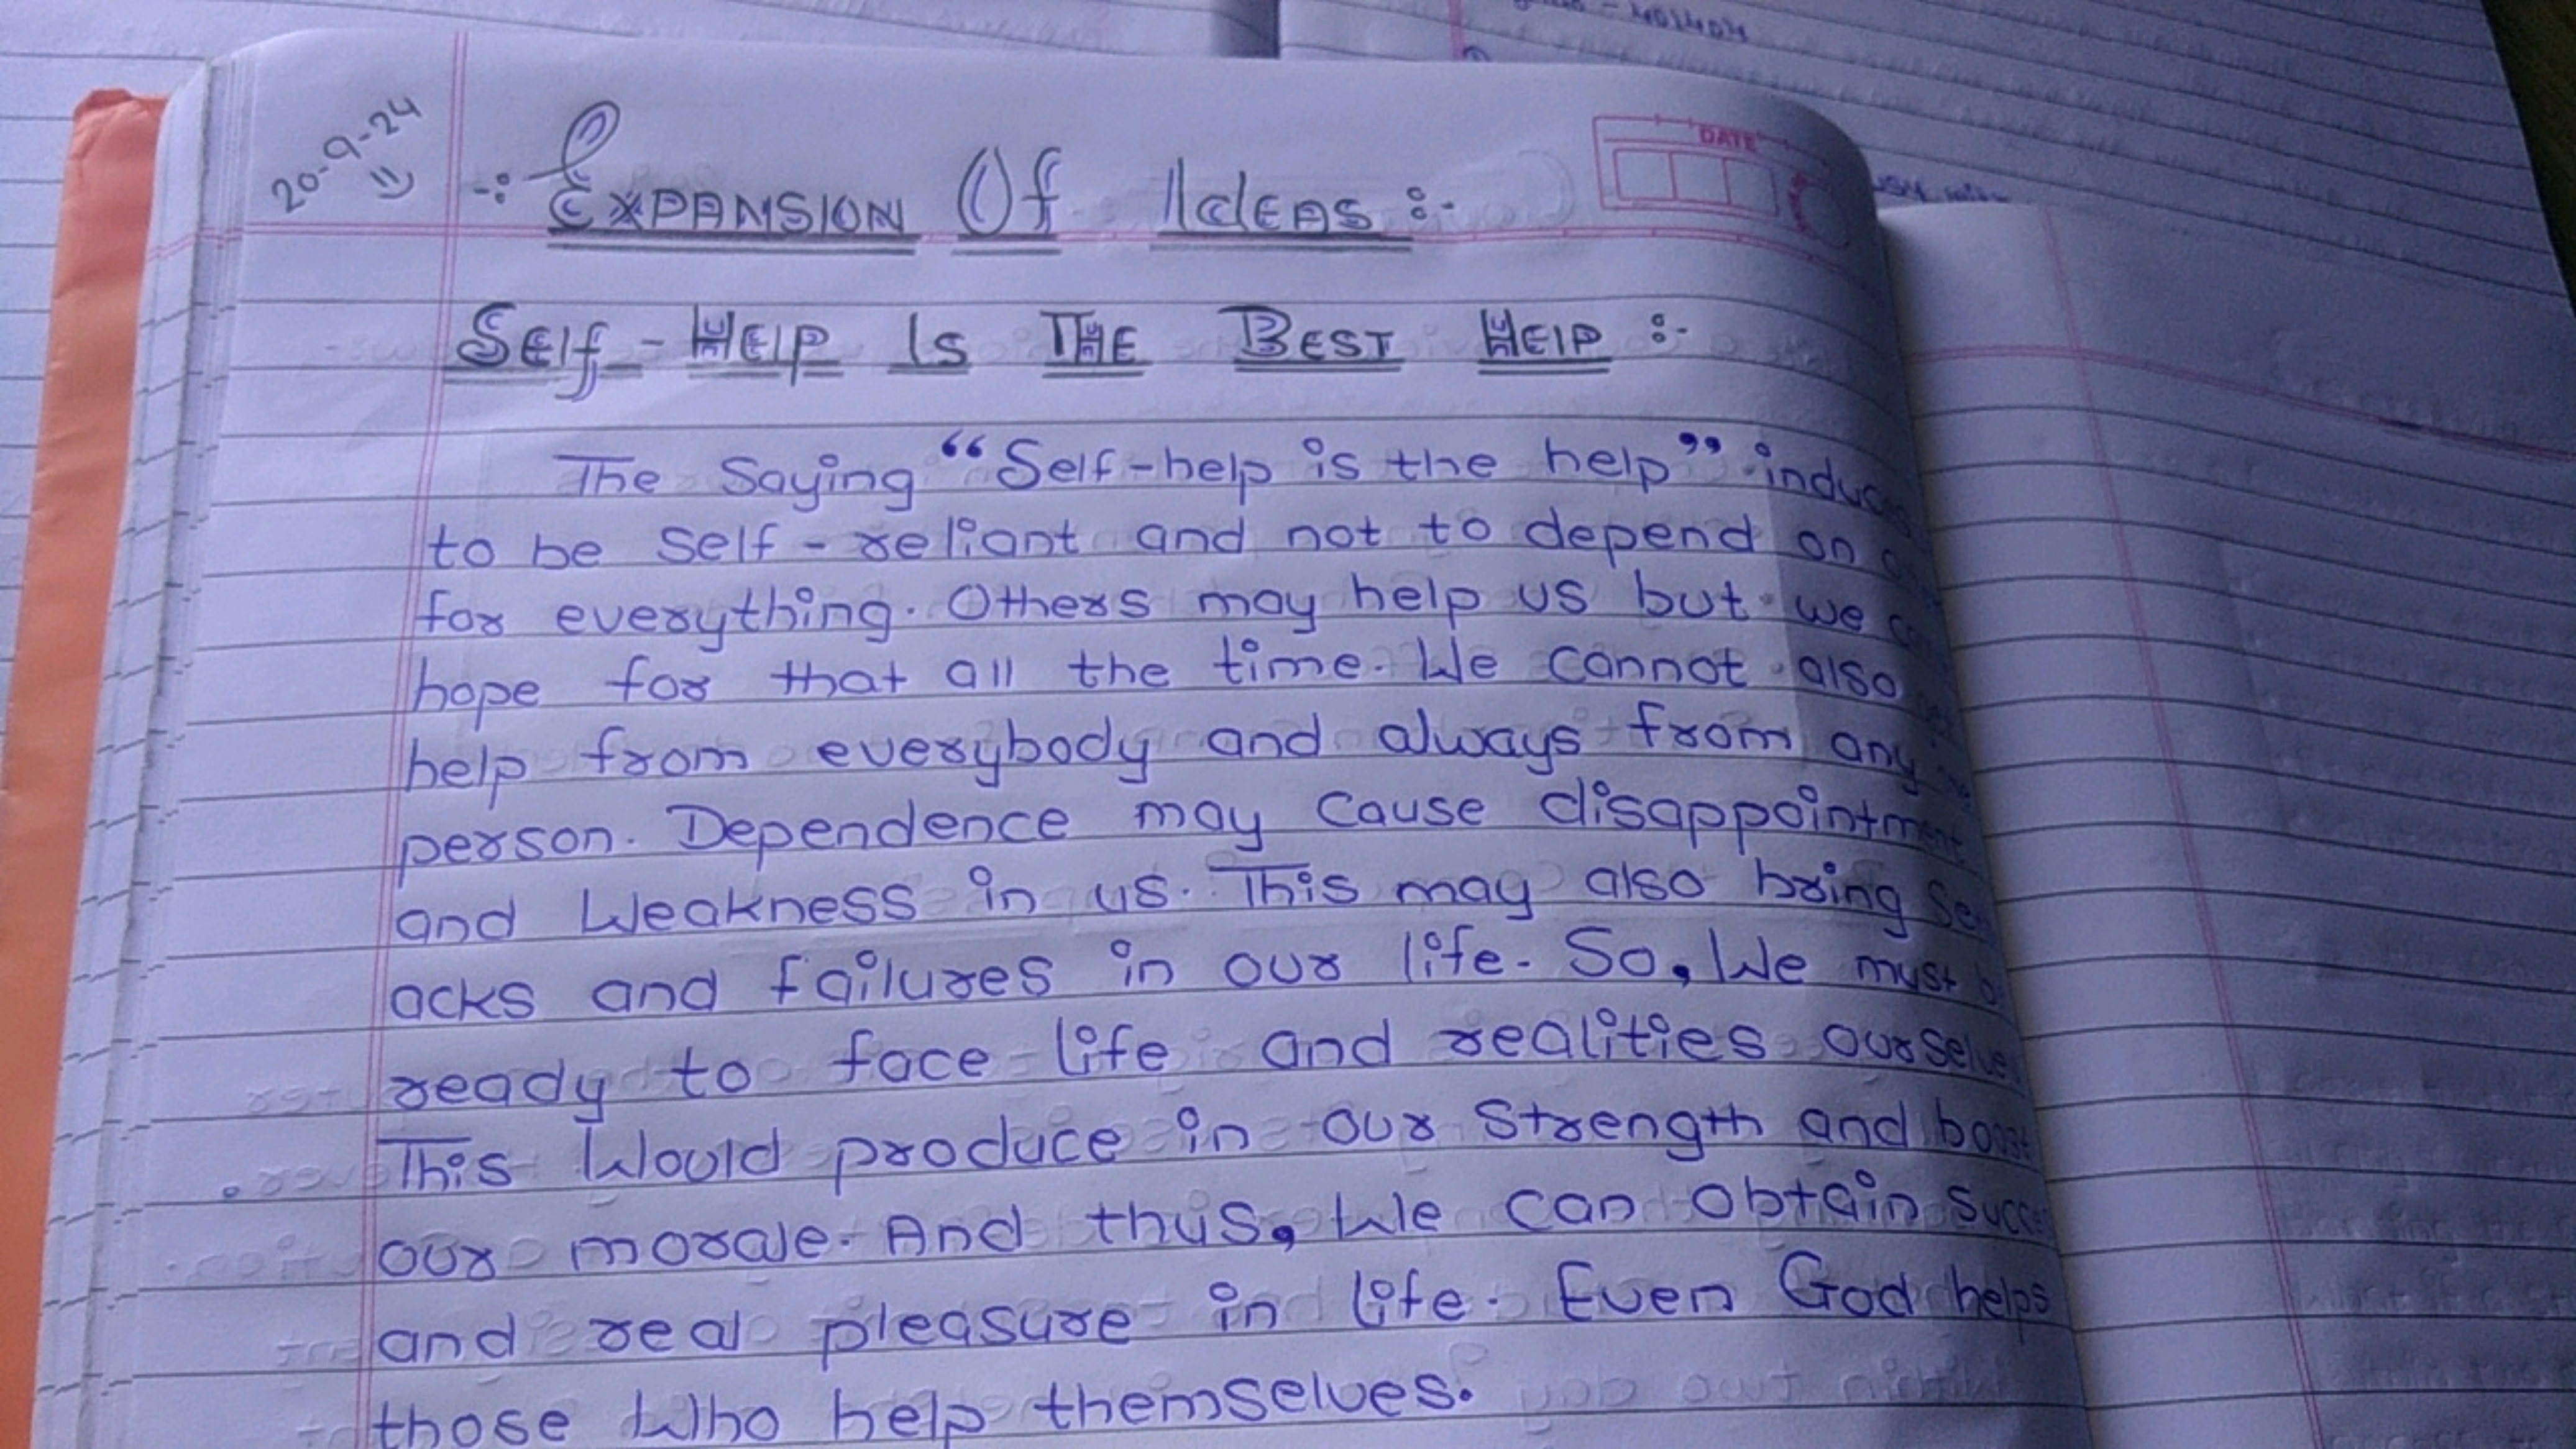 20-9-24
-: Expansion Of Ideas :-
DATE
Self-Help Is The Best Help :-
The Saying “Self-help is the help” induces
to be self-reliant and not to depend on
for everything. Others may help us but we
hope for that all the time. We cannot also
help from everybody and always from any
person. Dependence may cause disappointment
and Weakness in us. This may also bring
acks and failures in our life. So, We must
ready to face life and realities ourselves
This Would produce in our Strength and boost
our morale. And thus, We can obtain
and real pleasure in life. Even God helps
those Who help themselves.